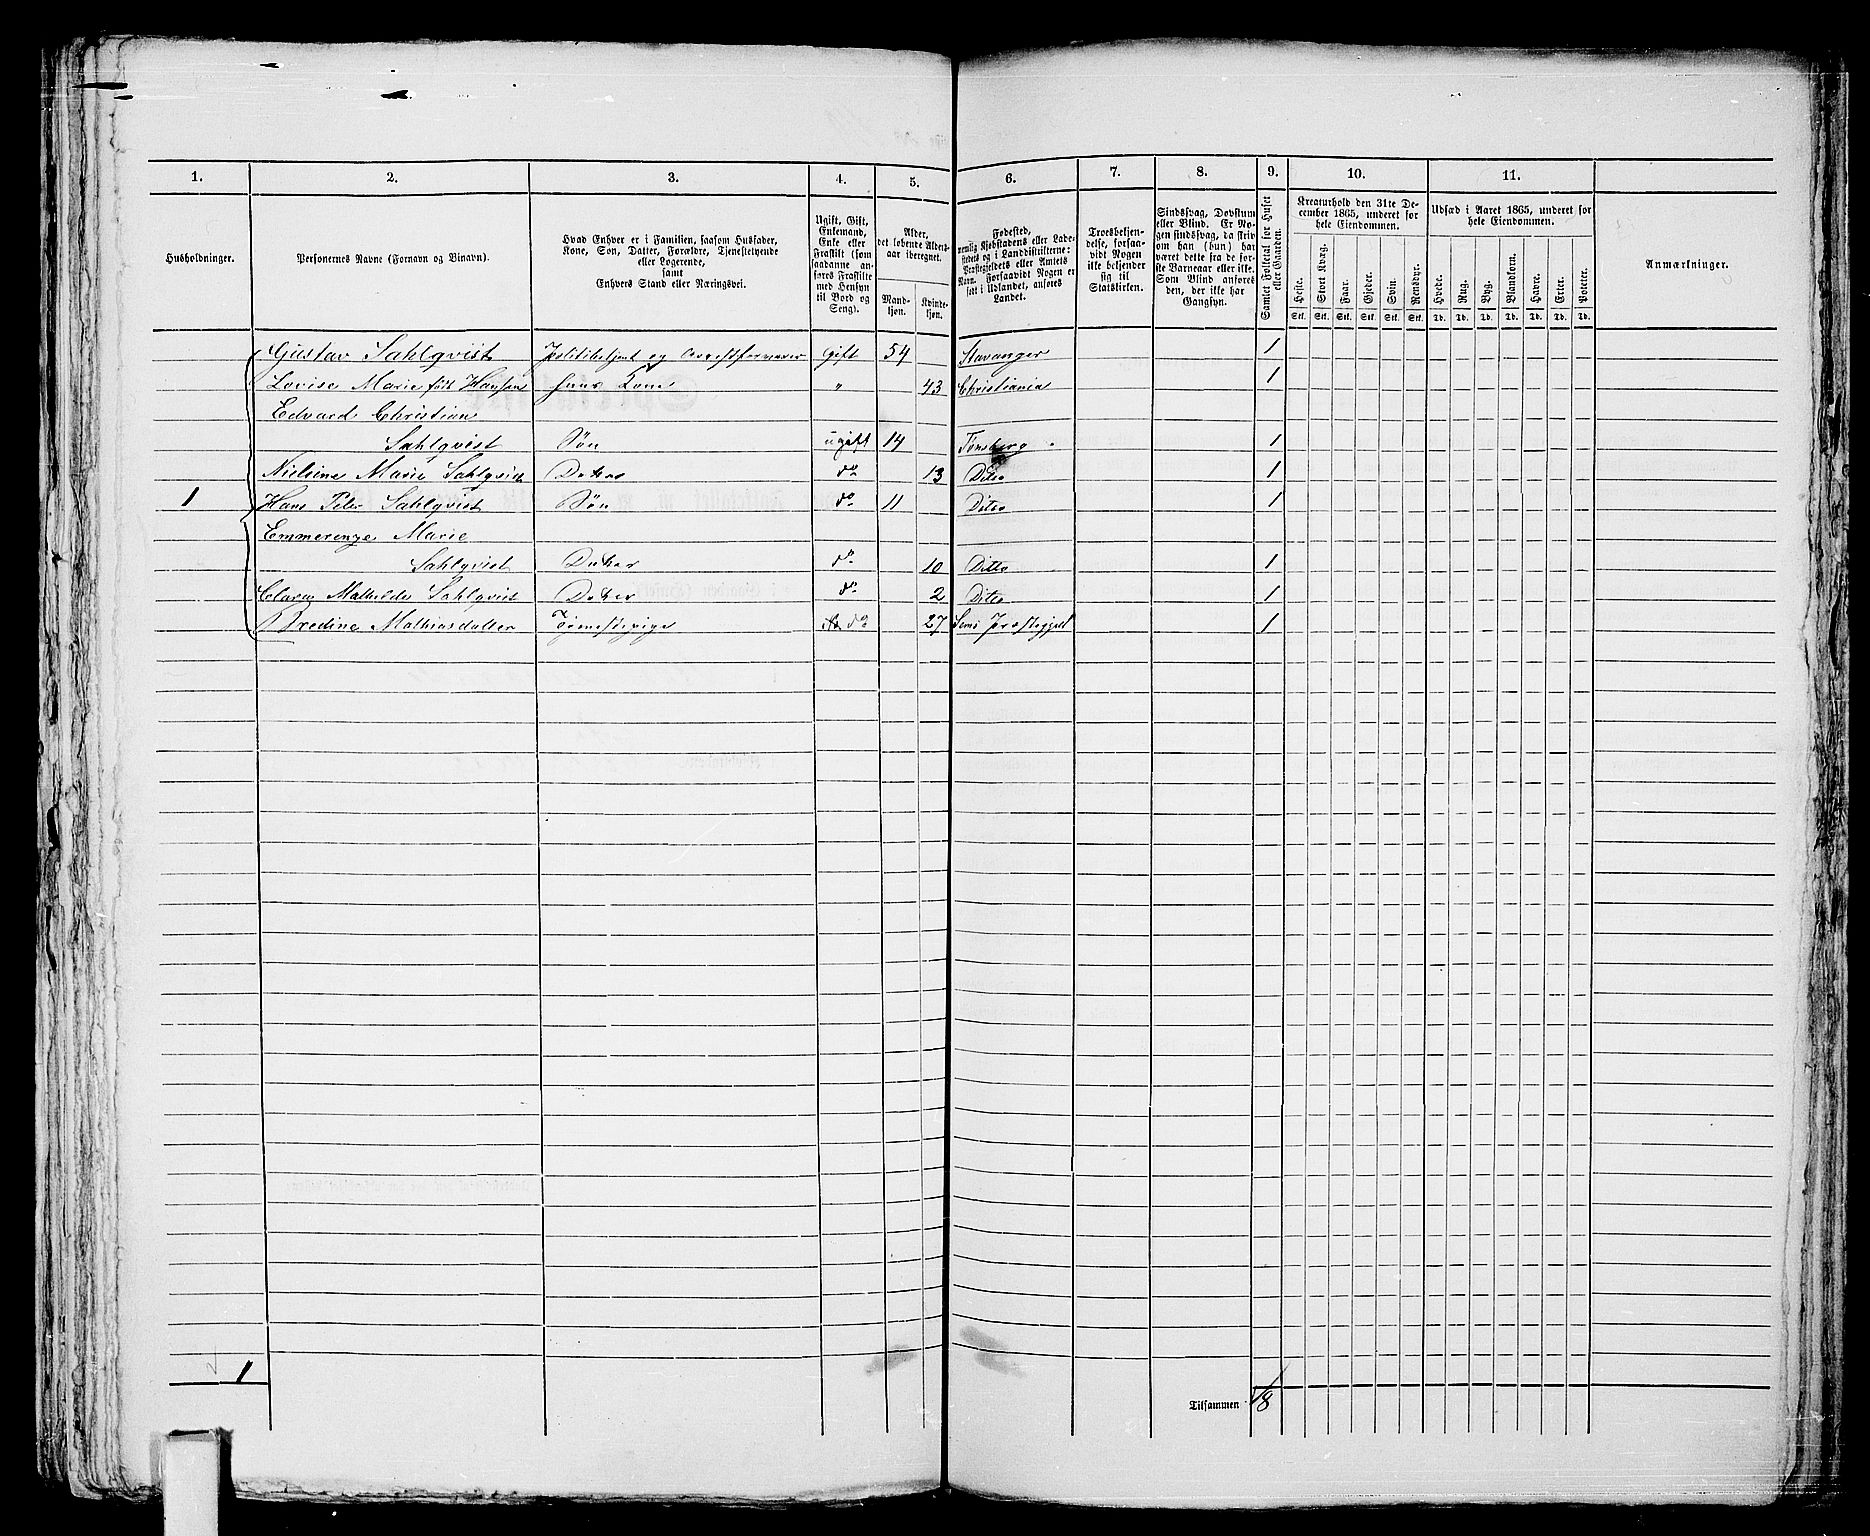 1. 2. 3. 4. 5. 6. 7. 8. 9. 10. 11.
Husholdninger.
Personernes Navne (Fornavn og Binavn).
Hvad Enhver er i Familien, saasom Husfader,
Kone, Søn, Datter, Forældre, Tjenestetyende
eller Logerende,
samt
Enhvers Stand eller Næringsvei.
Ugift, Gift,
Enkemand,
Enke eller
Fraskilt (som
saadanne an-
føres Fraskilte
med Hensyn
til Bord og
Seng).
Alder,
det løbende Alders-
aar iberegnet.
Mand-
kjøn.
Kvinde-
kjøn.
Fødested,
nemlig Kjøbstadens eller Lade-
stedets og i Landdistrikterne:
Præstegjeldets eller Amtets
Navn. Forsaavidt Nogen er
født i Udlandet, anføres
Landet.
Troesbekjen-
delse, forsaa-
vidt Nogen
ikke bekjender
sig til
Statskirken.
Sindssvag, Døvstum
eller Blind. Er No-
gen sindssvag, da skriv
om han (hun) har
været dette fra de for-
ste Barneaar eller ikke.
Som Blind anføres
den, der ikke har
Gangsyn.
Samlet Folketal for Huset
eller Gaarden.
Kreaturhold den 31te De-
cember 1865, underet for
hele Eiendommen.
Heste. Stort Kvæg. Faar. Gjeder. Svin. Rensdyr.
Stk. Stk. Stk. Stk. Stk. Stk.
Udsæd i Aaret 1865, underet for
hele Eiendommen.
Hvede. Rug. Byg. Blandkorn. Havre. Erter. Poteter.
Td. Td. Td. Td. Td. Td. Td.
Anmærkninger.
Gustav Sahlqvist Politibetjent og Arrestforvarer Gift 54 Stavanger 1
Lovise Marie født Hansen hans Kone " 43 Christiania 1
Edvard Christian
Sahlqvist Søn ugift 14 Tønsberg 1
Nielsine Marie Sahlqvist Datter do 13 Ditto 1
1 Hans Peter Sahlqvist Søn do 11 Ditto 1
Emmerenze Marie
Sahlqvist Datter do 10 Ditto 1
Clara Mathilde Sahlqvist Datter do 2 Ditto 1
Bredine Mathiasdatter Tjenestepige do 27 Sems Præstegjeld 1
1
Tilsammen 8